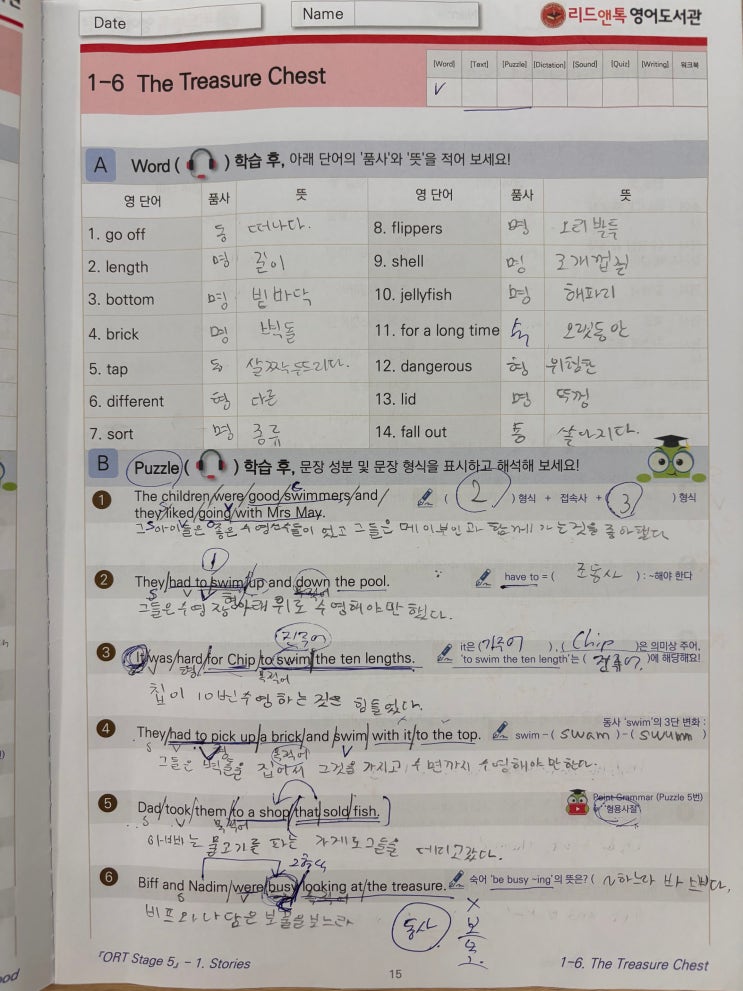 Date
Name
리드앤톡 영어도서관
1-6 The Treasure Chest
[Word] [Text] [Puzzle] [Dictation] [Sound] [Quiz] [Writing] 워크북
V
A Word ( ) 학습 후, 아래 단어의 '품사'와 '뜻'을 적어 보세요!
영 단어 품사 뜻 영 단어 품사 뜻
1. go off 동 떠나다. 8. flippers 명 오리발
2. length 명 길이 9. shell 명 조개껍질
3. bottom 명 밑바닥 10. jellyfish 명 해파리
4. brick 명 벽돌 11. for a long time 숙 오랫동안
5. tap 동 살짝두드리다. 12. dangerous 형 위험한
6. different 형 다른 13. lid 명 뚜껑
7. sort 명 종류 14. fall out 동 쏟아지다.
B Puzzle ( ) 학습 후, 문장 성분 및 문장 형식을 표시하고 해석해 보세요!
1 The children/were/good/swimmers/and/ ( 2 ) 형식 + 접속사 + ( 3 ) 형식
they/liked/going/with Mrs May.
그 아이들은 좋은 수영선수들이 었고 그들은 메이부인과 함께 가는것을 좋아했다
2 They/had to swim/up and down the pool. have to = ( 조동사 ) : ~해야 한다
S V 형 목적어
그들은 수영장 아래 위로 수영해야만 했다.
진주어
3 It/was/hard/for Chip/to swim/the ten lengths. it은 (가주어), (Chip)은 의미상 주어,
'to swim the ten length'는 ( 진주어, )에 해당해요!
V 형 목적어
칩이 10번 수영하는 것은 힘들었다.
4 They/had to pick up/a brick/and/swim/with it/to the top. 동사 'swim'의 3단 변화 :
swim - (swam) - (swum)
S 목적어 V
그들은 벽돌을 집어서 그것을 가지고 수면까지 수영해야만한다.
5 Dad/took/them/to a shop/that sold/fish. Point Grammar (Puzzle 5번)
"형용사절"
S V 목적어
아빠는 물고기를 파는 가게로 그들을 데리고갔다.
6 Biff and Nadim/were/busy/looking at/the treasure. 숙어 'be busy ~ing'의 뜻은? ( ~하느라 바쁘다,
S V 목적어
비프와 나딤은 보물을보느라
동사
X
보
목
『ORT Stage 5』 – 1. Stories
15
1-6. The Treasure Chest